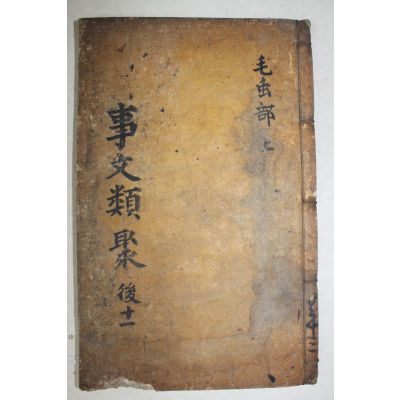 毛虫部 上
事文類聚 後十一